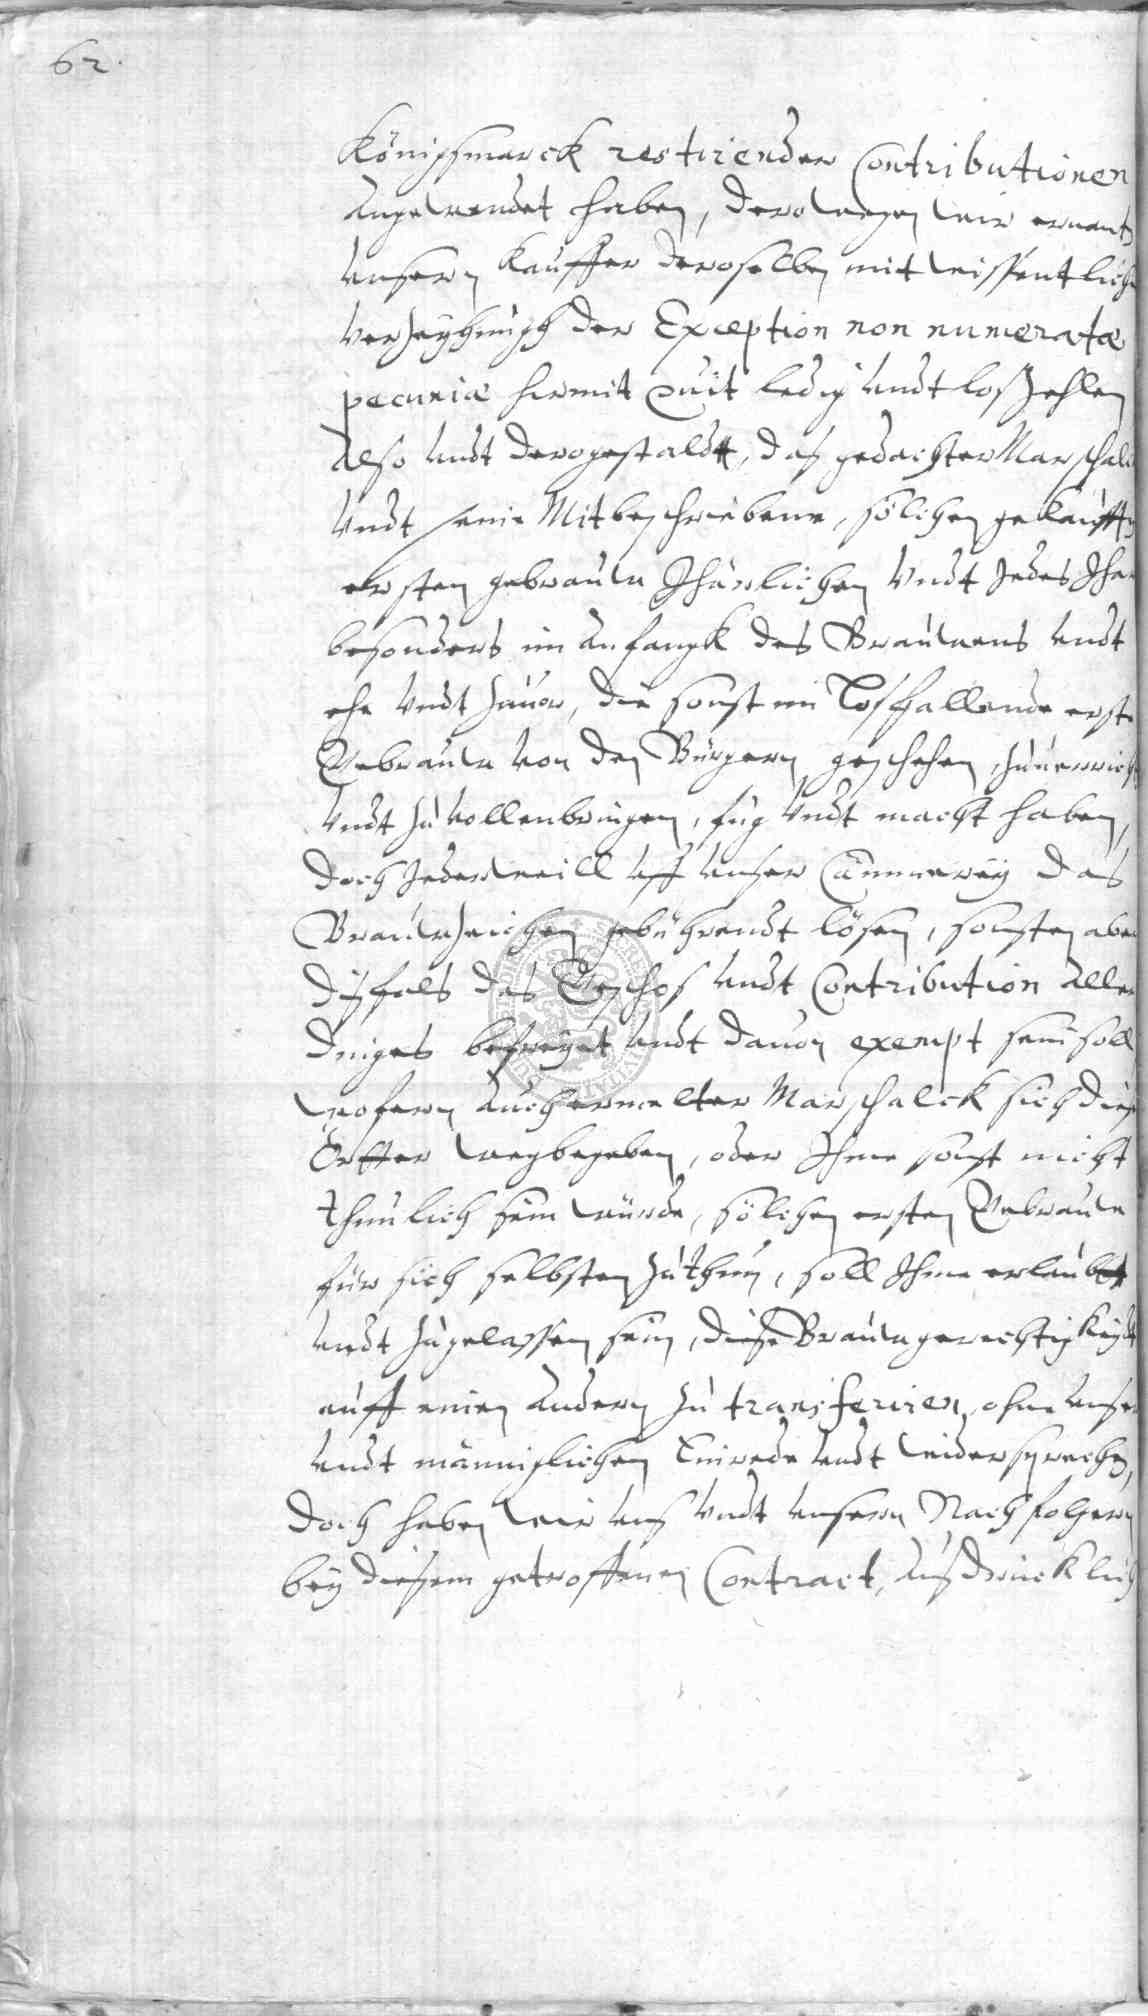 62.
Königsmarck restirender Contributionen
angewendet haben, derowegen wir ernant
unsern Kauffer deroselben mit wissentlich
Verzeyhungh der Exception non numeratæ
pecuniæ hirmit quit ledig undt loßzehlen
Also undt derogestaldt, das gedachter Marschal
Undt seine Mitbeschriebene, solchen gekaufft
ersten gebrauw Jhärlichen Undt Jedes Jhar
besonders im anfangk des Brauwens undt
ehe Undt zuuor, die sonst im Loß fallende erst
Gebrauw von den Bürgern geschehen, zuuerrich
Undt zu vollenbringen, fug Undt macht haben,
doch Jederweill uff unser Cämmerey das
Brauwzeichen gebührendt lösen, sonsten aber
dißfals des Geschos undt Contribution aller
dinges befreyet undt dauon exempt sein soll
wofern auch ermelter Marschalck sich dieß
Örtter wegbegeben, oder Ihme sonst nicht
thunlich sein würde, solchen ersten Gebrauw
für sich selbsten zu thun, soll Ihme erlaubt
undt zugelassen sein, diese Brauwgerechtigkeyt
auff einen andern zu transferiren, ohne unser
undt männiglichen Einrede undt widersprechen,
doch haben wir uns Undt unsern Nachfolgern
bey diesem getroffenen Contract, ausdrücklich